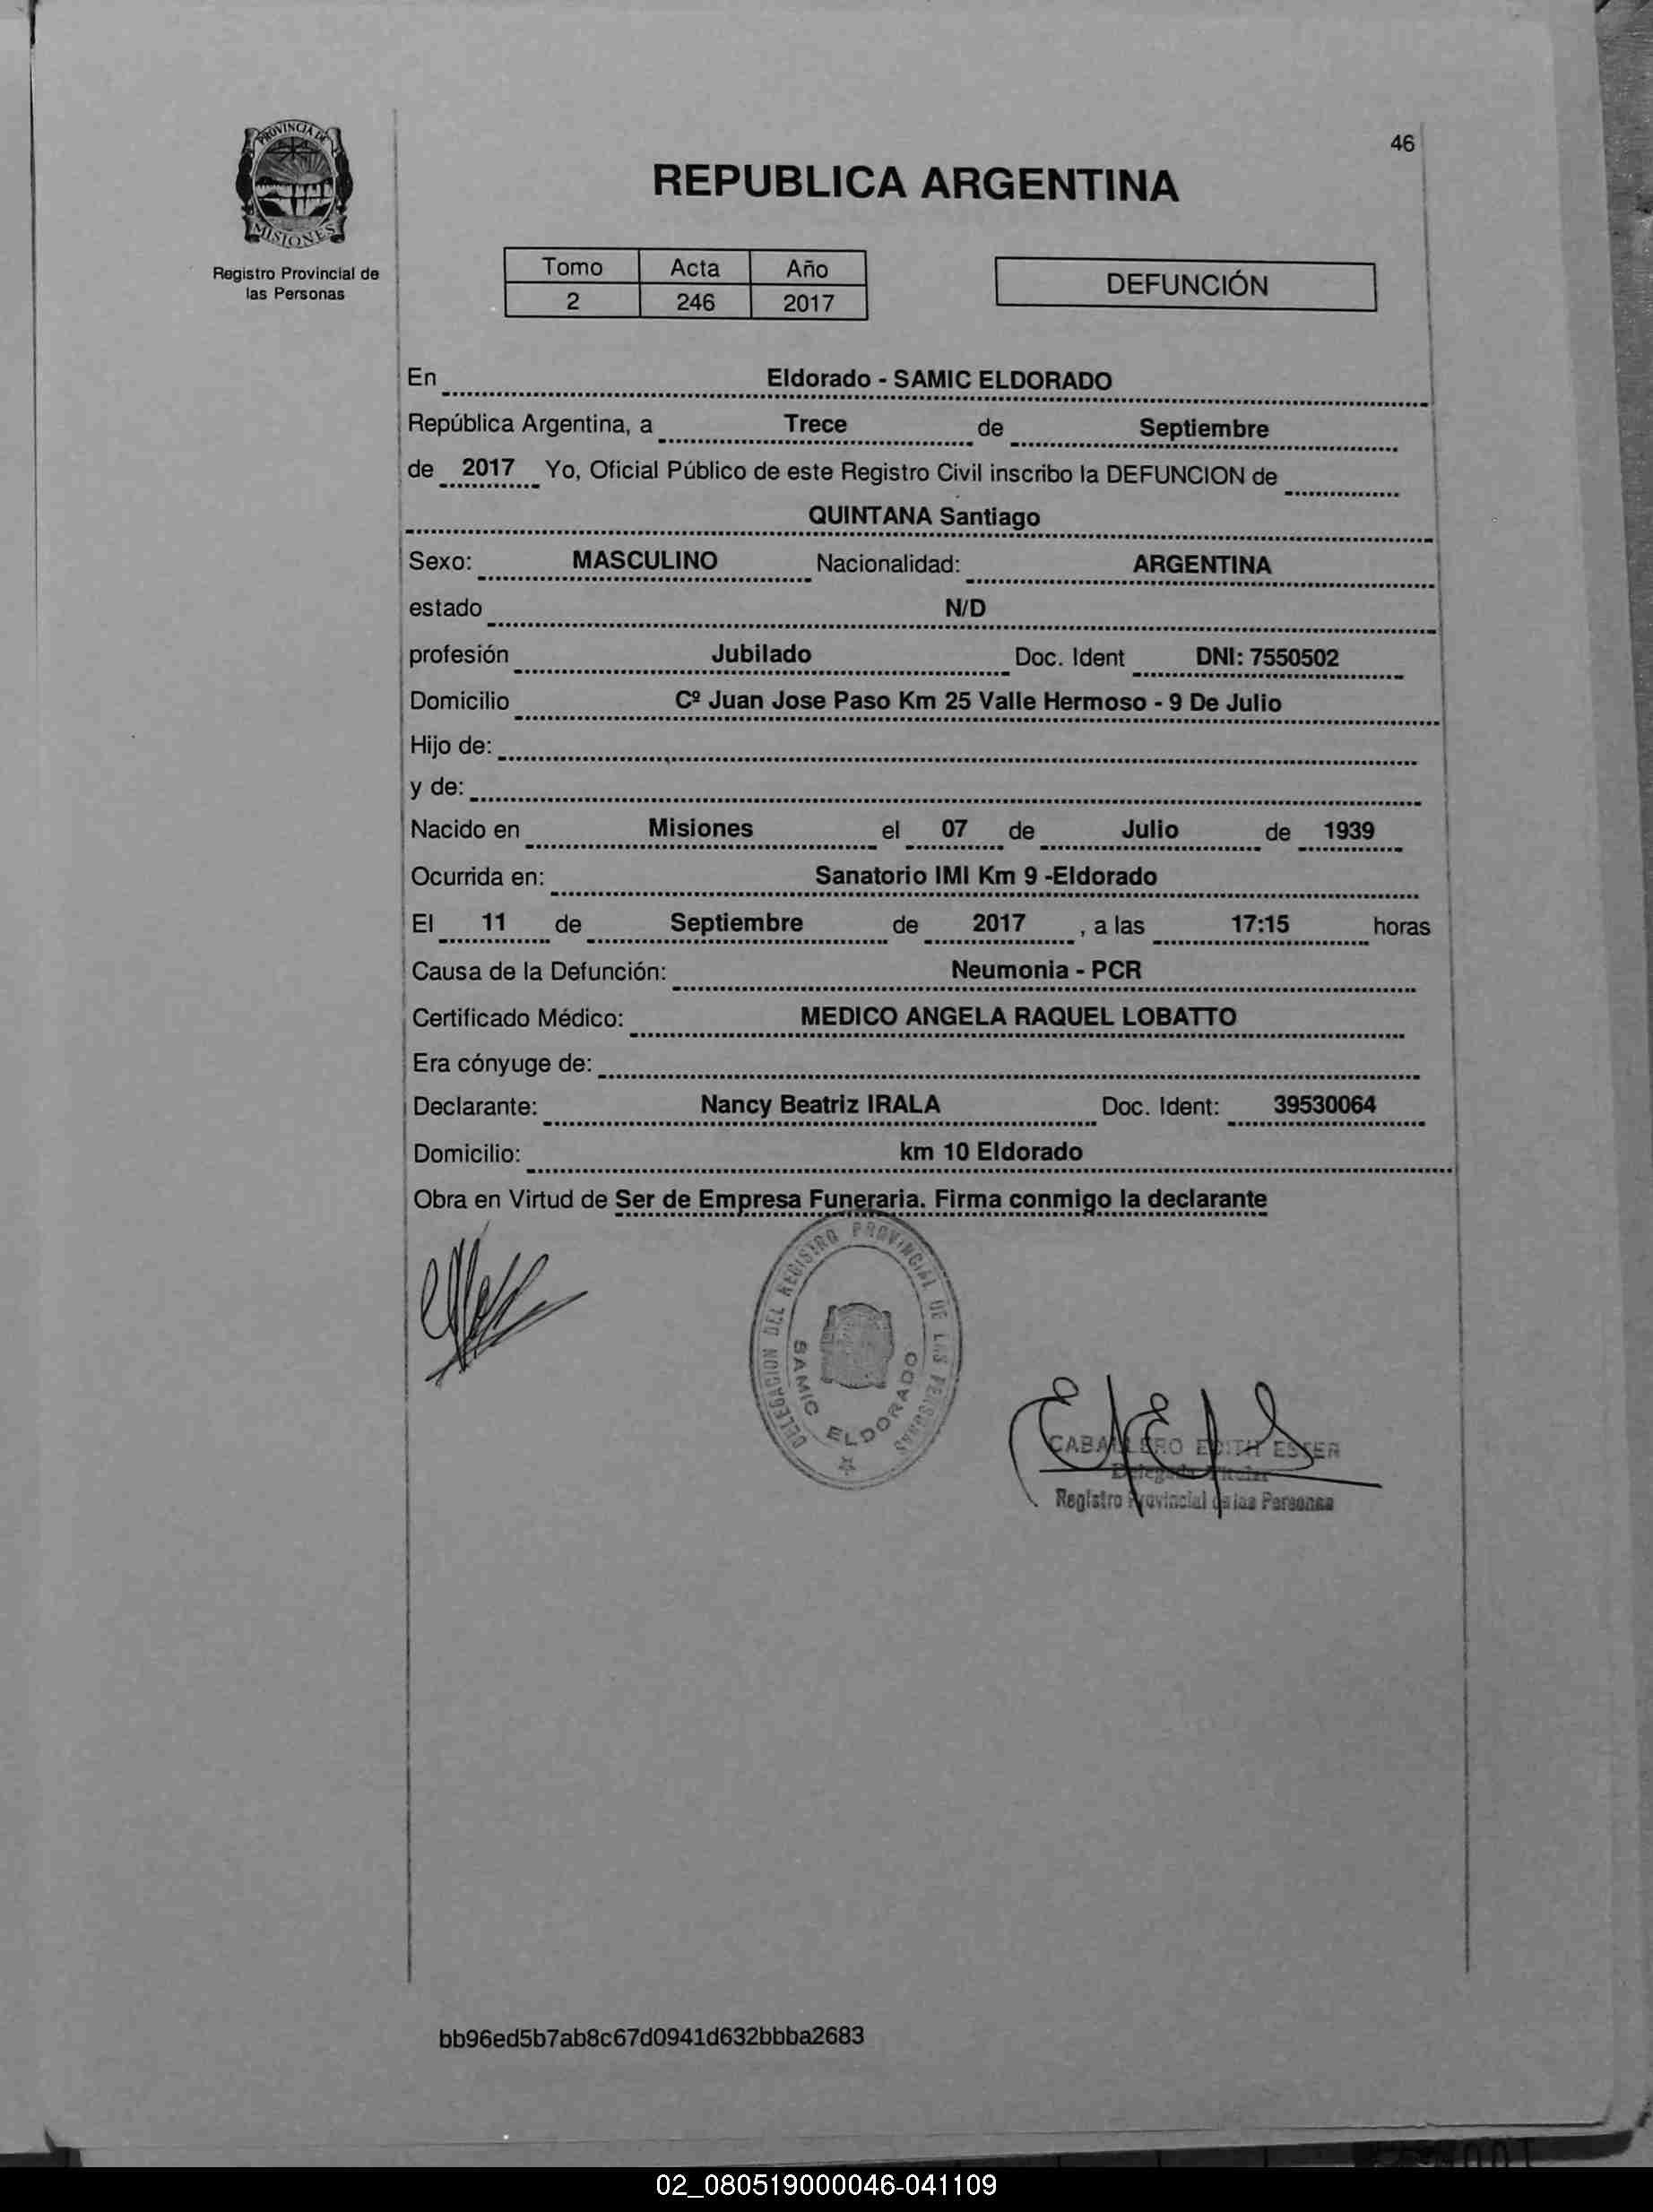 46
PROVINCIA DE
MISIONES
Registro Provincial de
las Personas
REPUBLICA ARGENTINA
Tomo Acta Año
2 246 2017
DEFUNCIÓN
En Eldorado - SAMIC ELDORADO
República Argentina, a Trece de Septiembre
de 2017 Yo, Oficial Público de este Registro Civil inscribo la DEFUNCION de
QUINTANA Santiago
Sexo: MASCULINO Nacionalidad: ARGENTINA
estado N/D
profesión Jubilado Doc. Ident DNI: 7550502
Domicilio Cº Juan Jose Paso Km 25 Valle Hermoso - 9 De Julio
Hijo de:
y de:
Nacido en Misiones el 07 de Julio de 1939
Ocurrida en: Sanatorio IMI Km 9 -Eldorado
El 11 de Septiembre de 2017 , a las 17:15 horas
Causa de la Defunción: Neumonia - PCR
Certificado Médico: MEDICO ANGELA RAQUEL LOBATTO
Era cónyuge de:
Declarante: Nancy Beatriz IRALA Doc. Ident: 39530064
Domicilio: km 10 Eldorado
Obra en Virtud de Ser de Empresa Funeraria. Firma conmigo la declarante
DELEGACION DEL REGISTRO PROVINCIAL DE LAS PERSONAS
SAMIC ELDORADO
CABALLERO EDITH ESTER
Delegada Titular
Registro Provincial de las Personas
bb96ed5b7ab8c67d0941d632bbba2683
02_080519000046-041109